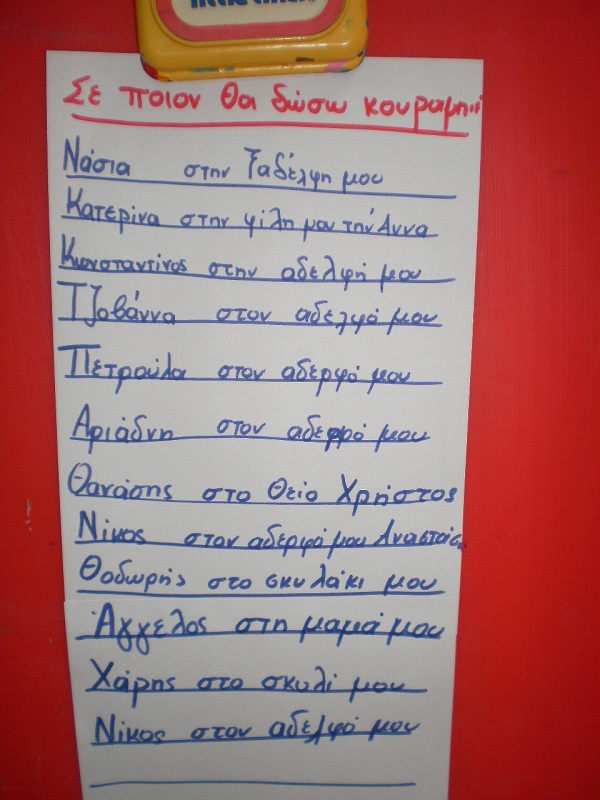 little tikes
Σε ποιον θα δώσω κουραμπιέ
Νάσια στην ξαδέλφη μου
Κατερίνα στην φίλη μου την Άννα
Κωνσταντίνος στην αδελφή μου
Τζοβάννα στον αδελφό μου
Πετρούλα στον αδερφό μου
Αριάδνη στον αδερφό μου
Θανάσης στο Θείο Χρήστος
Νίκος στον αδερφό μου
Θοδωρής στο σκυλάκι μου
Άγγελος στη μαμά μου
Χάρης στο σκυλί μου
Νίκος στον αδελφό μου